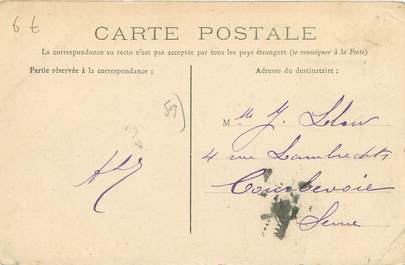 6 €
CARTE POSTALE
La correspondance au recto n'est pas acceptée par tous les pays étrangers (se renseigner à la Poste)
Partie réservée à la correspondance :
Adresse du destinataire :
59
M lle J. Lelou
4 rue Lambrechts
Courbevoie
Seine